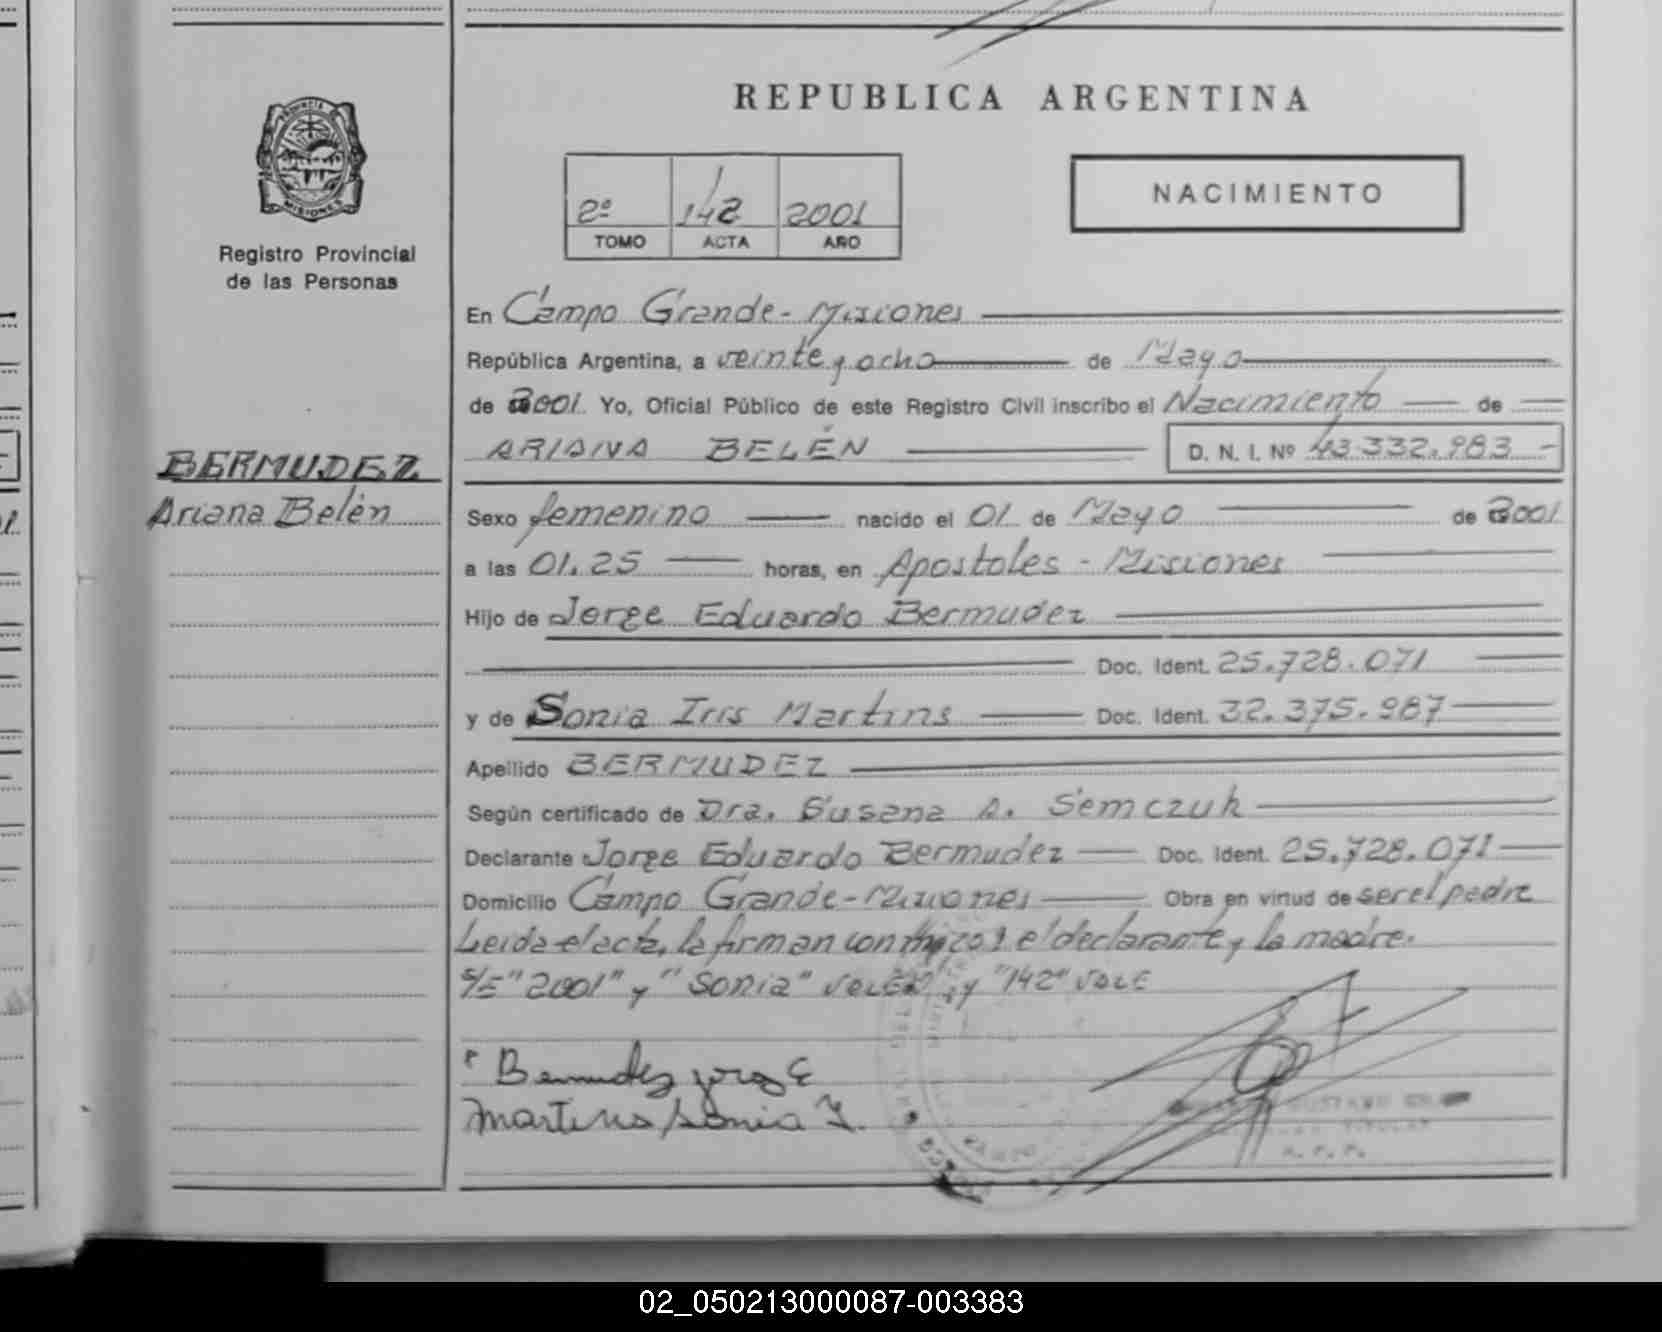 REPUBLICA ARGENTINA
PROVINCIA
MISIONES
Registro Provincial
de las Personas
2º 142 2001
TOMO ACTA AÑO
NACIMIENTO
En Campo Grande - Misiones
República Argentina, a veinte y ocho de Mayo
de 2001 Yo, Oficial Público de este Registro Civil inscribo el Nacimiento de
ARIANA BELÉN D. N. I. Nº 43.332.983 -
BERMUDEZ
Ariana Belén
Sexo femenino nacido el 01 de Mayo de 2001
a las 01.25 horas, en Apostoles - Misiones
Hijo de Jorge Eduardo Bermudez
Doc. Ident. 25.728.071
y de Sonia Iris Martins Doc. Ident. 32.375.987
Apellido BERMUDEZ
Según certificado de Dra. Susana A. Semczuk
Declarante Jorge Eduardo Bermudez Doc. Ident. 25.728.071
Domicilio Campo Grande - Misiones Obra en virtud de ser el padre
Leida el acta, la firman conmigo el declarante y la madre.
S/E "2001" y "Sonia" VALEN y "142" VALE
Bermudez Jorge E
Martins Sonia I.
GUSTAVO
TITULAR
R. P. P.
02_050213000087-003383